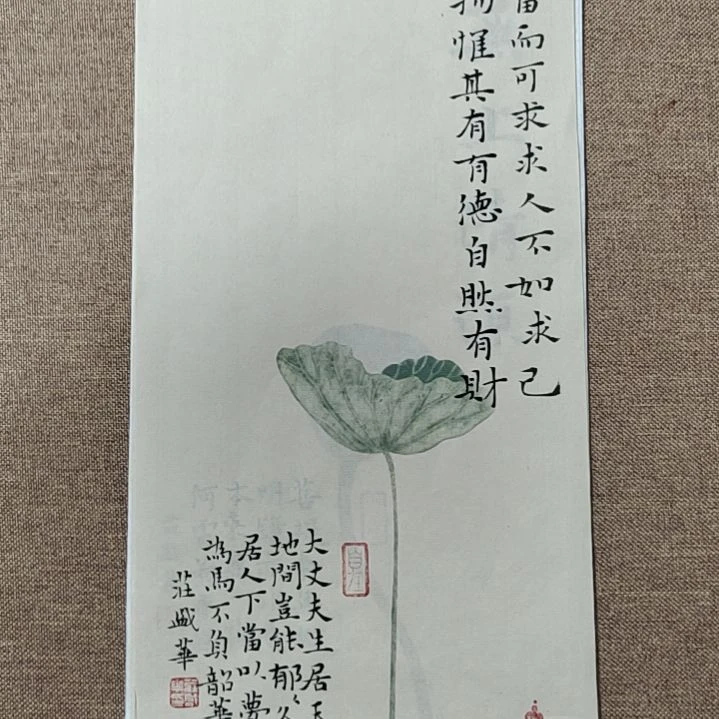 而可求求人不如求己
惟其有有德自然有財
大丈夫生居天
地間豈能郁郁久
居人下當以夢
為馬不負韶華
莊盛華